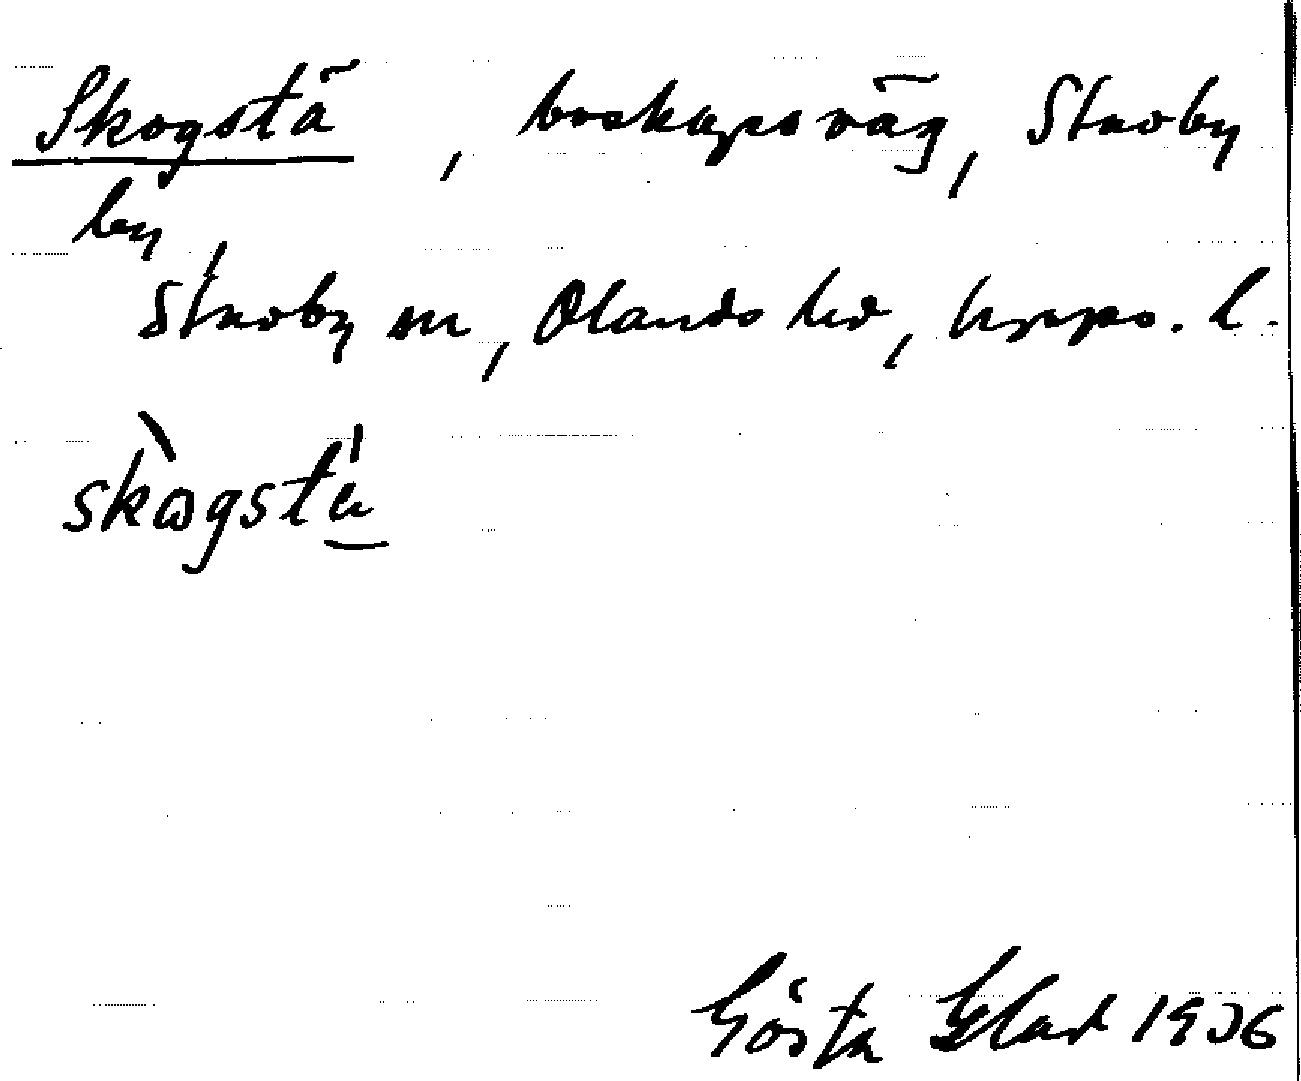 Skogstä, boskapsväg, Stavby
by,
Stavby sn, Olands hd, Upps. l.
skɷgstä
Gösta Elad 1936